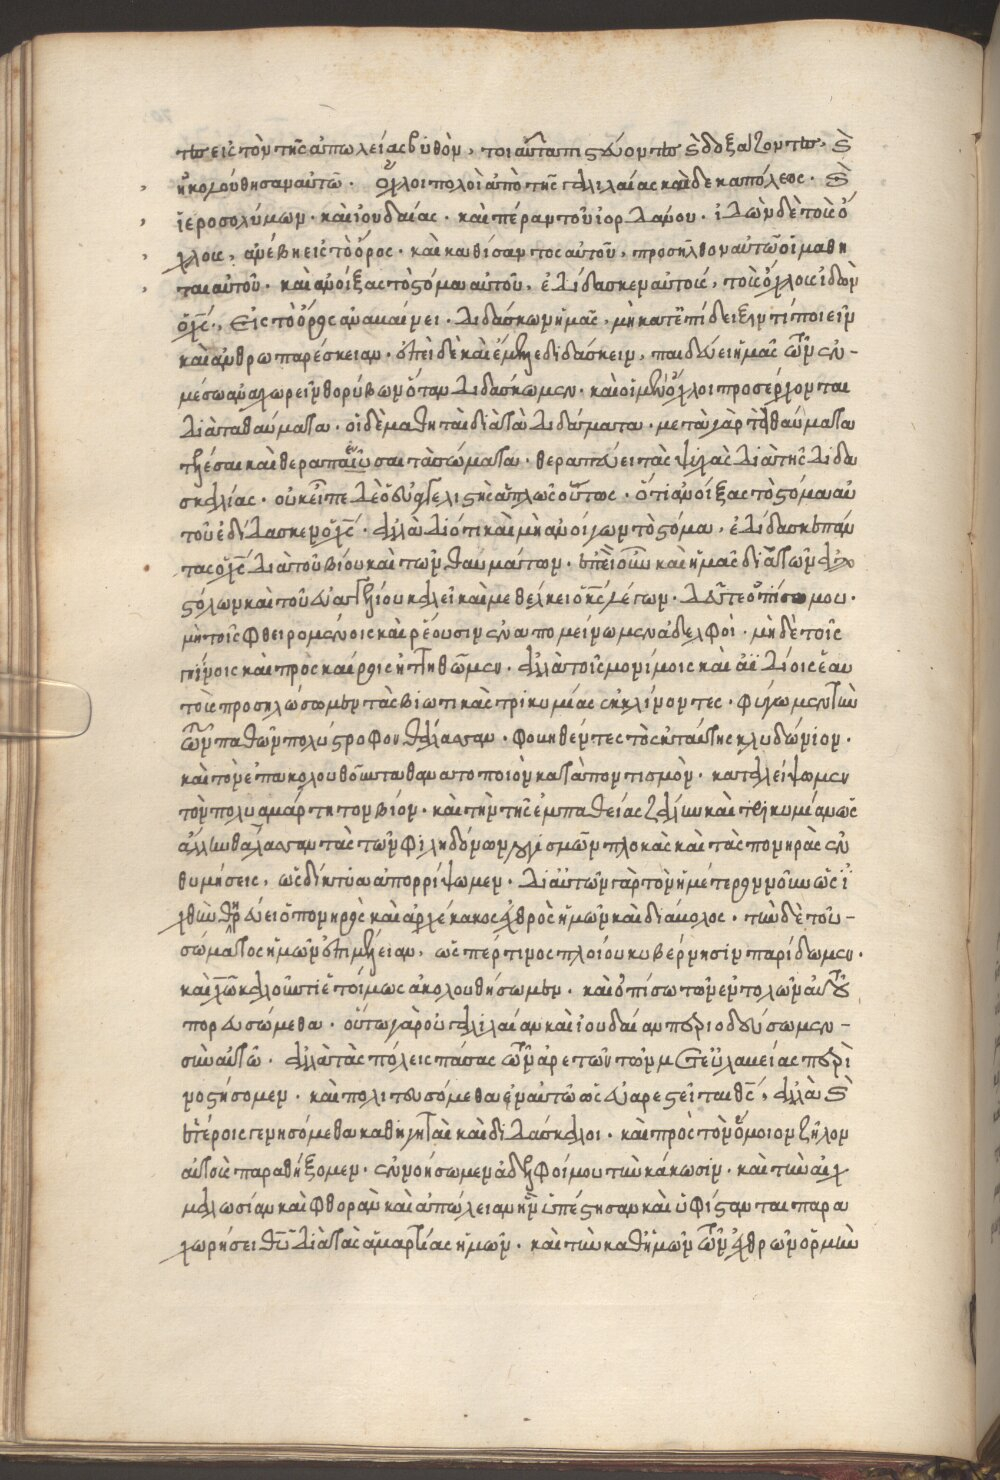 τας εἰς τὸν τῆς ἀπωλείας βυθὸν, τοιαῦτα πιστεύοντας καὶ δοξάζοντας. καὶ
ἠκολούθησαν αὐτῶ. ὄχλοι πολοὶ ἀπὸ τῆς γαλιλαίας καὶ δεκαπόλεος. καὶ
ἱεροσολύμων. καὶ ἰουδαίας. καὶ πέραν τοῦ ἰορδάνου. ἰδὼν δὲ τοὺς ὄ
χλους, ἀνέβη εἰς τὸ ὄρος. καὶ καθίσαντος αὐτοῦ, προσῆλθον αὐτῶ οἱ μαθη
ται αὐτοῦ. καὶ ἀνοίξας τὸ στόμα αὐτοῦ, ἐδίδασκεν αὐτούς, τοὺς ὄχλους ἰδὼν
ὁ χς, εἰς τὸ ὄρος ἀναβαίνει. διδάσκων ἡμᾶς, μὴ κατ' ἐπίδειξιν τί ποιεῖν
καὶ ἀνθρωπαρέσκειαν. ἐπεὶ δὲ καὶ ἔμελλε διδάσκειν, παιδεύει ἡμᾶς τῶν ἐν
μέσω ἀναχωρεῖν θορύβων ὅταν διδάσκωμεν. καὶ οἱ μὲν ὄχλοι προσέρχονται
διὰ τὰ θαύματα. οἱ δὲ μαθηταὶ διὰ τὰ διδάγματα. μετὰ γὰρ τὸ θαύματα
τελέσαι καὶ θεραπεῦσαι τὰ σώματα. θεραπεύει τὰς ψυχὰς διὰ τῆς διδα
σκαλίας. οὐκ εἶπε δὲ ὁ εὐαγγελιστὴς ἁπλῶς οὕτως. ὅτι ἀνοίξας τὸ στόμα αὐ
τοῦ ἐδίδασκεν ὁ χς. ἀλλὰ διότι καὶ μὴ ἀνοίγων τὸ στόμα, ἐδίδασκε πάν
τας ὁ χς διὰ τοῦ βίου καὶ τῶν θαυμάτων. ἐπεὶ οὖν καὶ ἡμᾶς διὰ τῶν ἀπο
στόλων καὶ τοῦ εὐαγγελίου καλεῖ καὶ μεθέλκει ὁ κς λέγων. δεῦτε ὀπίσω μου.
μὴ τοῖς φθειρομένοις καὶ ρέουσιν ἐναπομείνωμεν ἀδελφοὶ. μὴ δὲ τοῖς
γηΐνοις καὶ προσκαίροις ἡττηθῶμεν. ἀλλὰ τοῖς μονίμοις καὶ ἀϊδίοις ἑαυ
τοὺς προσηλώσωμεν τὰς βιωτικὰς τρικυμίας ἐκκλίνοντες. φύγωμεν τὴν
τῶν παθῶν πολύστροφον θάλασσαν. φοβηθέντες τὸν ἐν ταύτης κλυδώνιον.
καὶ τὸν ἐπακολουθοῦντα θανατοποιὸν καταποντισμὸν. καταλείψωμεν
τὸν πολυαμάρτητον βίον. καὶ τὴν τῆς ἐμπαθείας ζάλην καὶ τρικυμίαν ὡς
ἄλλην θάλασσαν τὰς τῶν φιληδόνων λογισμῶν πλοκὰς καὶ τὰς πονηρὰς ἐν
θυμήσεις, ὡς δίκτυα ἀπορρίψωμεν. δι' αὐτῶν γὰρ τὸν ἡμέτερον νοῦν ὡς ἰ
χθὺν θηρεύει ὁ πονηρὸς καὶ ἀρχέκακος ἐχθρὸς ἡμῶν καὶ διάβολος. τὴν δὲ τοῦ
σώματος ἡμῶν ἐπιμέλειαν, ὥς πέρ τινος πλοίου κυβέρνησιν παρίδωμεν.
καὶ χῶ καλοῦντι ἑτοίμως ἀκολουθήσωμεν. καὶ ὀπίσω τῶν ἐντολῶν αὐτοῦ
πορευσώμεθα. οὕτω γὰρ οὐ γαλιλαίαν καὶ ἰουδαίαν περιοδεύσωμεν
σὺν αὐτῶ. ἀλλὰ τὰς πόλεις πάσας τῶν ἀρετῶν τῶν μετ' εὐλαβείας περὶ
νοστήσομεν. καὶ πολιτευσόμεθα ἐν αὐτῶ ὡς εὐαρεστεῖται θς, ἀλλὰ καὶ
ἑτέροις γενησόμεθα καθηγηταὶ καὶ διδάσκαλοι. καὶ πρὸς τὸν ὅμοιον ζῆλον
αὐτοὺς παραθήξομεν. ἐννοήσωμεν ἀδελφοί μου τὴν κάκωσιν. καὶ τὴν αἰχ
μαλωσίαν καὶ φθορὰν καὶ ἀπώλειαν ἣν ὑπέστησαν καὶ ὑφίστανται παρα
χωρήσει θῦ διὰ τὰς ἁμαρτίας ἡμῶν. καὶ τὴν καθ' ἡμῶν τῶν ἐχθρῶν ὁρμὴν